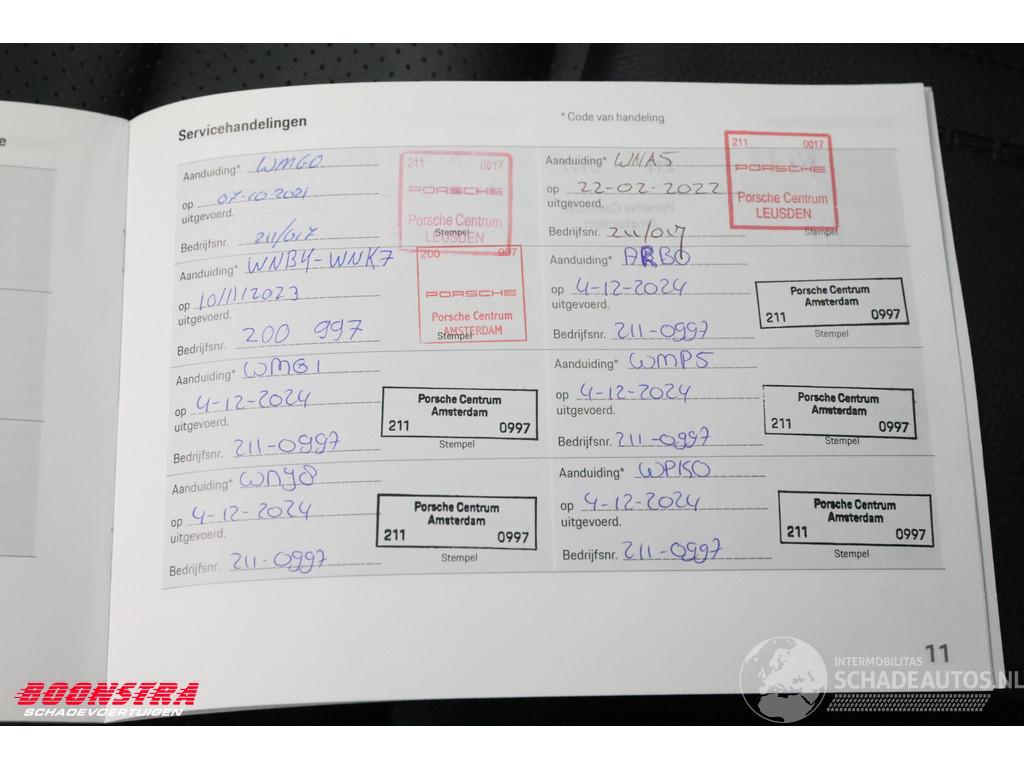 Servicehandelingen
* Code van handeling
Aanduiding* WMG0
op 07-10-2021
uitgevoerd.
Bedrijfsnr. 211/017
211 0017
PORSCHE
Porsche Centrum
LEUSDEN
Stempel
Aanduiding* WNA5
op 22-02-2022
uitgevoerd.
Bedrijfsnr. 211/017
211 0017
PORSCHE
Porsche Centrum
LEUSDEN
Stempel
Aanduiding* WNB4-WNK7
op 10/11/2023
uitgevoerd.
Bedrijfsnr. 200 997
200 997
PORSCHE
Porsche Centrum
AMSTERDAM
Stempel
Aanduiding* ARB0
op 4-12-2024
uitgevoerd.
Bedrijfsnr. 211-0997
Porsche Centrum
Amsterdam
211 0997
Stempel
Aanduiding* WMG1
op 4-12-2024
uitgevoerd.
Bedrijfsnr. 211-0997
Porsche Centrum
Amsterdam
211 0997
Stempel
Aanduiding* WMP5
op 4-12-2024
uitgevoerd.
Bedrijfsnr. 211-0997
Porsche Centrum
Amsterdam
211 0997
Stempel
Aanduiding* WNY8
op 4-12-2024
uitgevoerd.
Bedrijfsnr. 211-0997
Porsche Centrum
Amsterdam
211 0997
Stempel
Aanduiding*
op 4-12-2024
uitgevoerd.
Bedrijfsnr. 211-0997
Porsche Centrum
Amsterdam
211 0997
Stempel
11
BOONSTRA
SCHADEVOERTUIGEN
INTERMOBILITAS
SCHADEAUTOS.NL